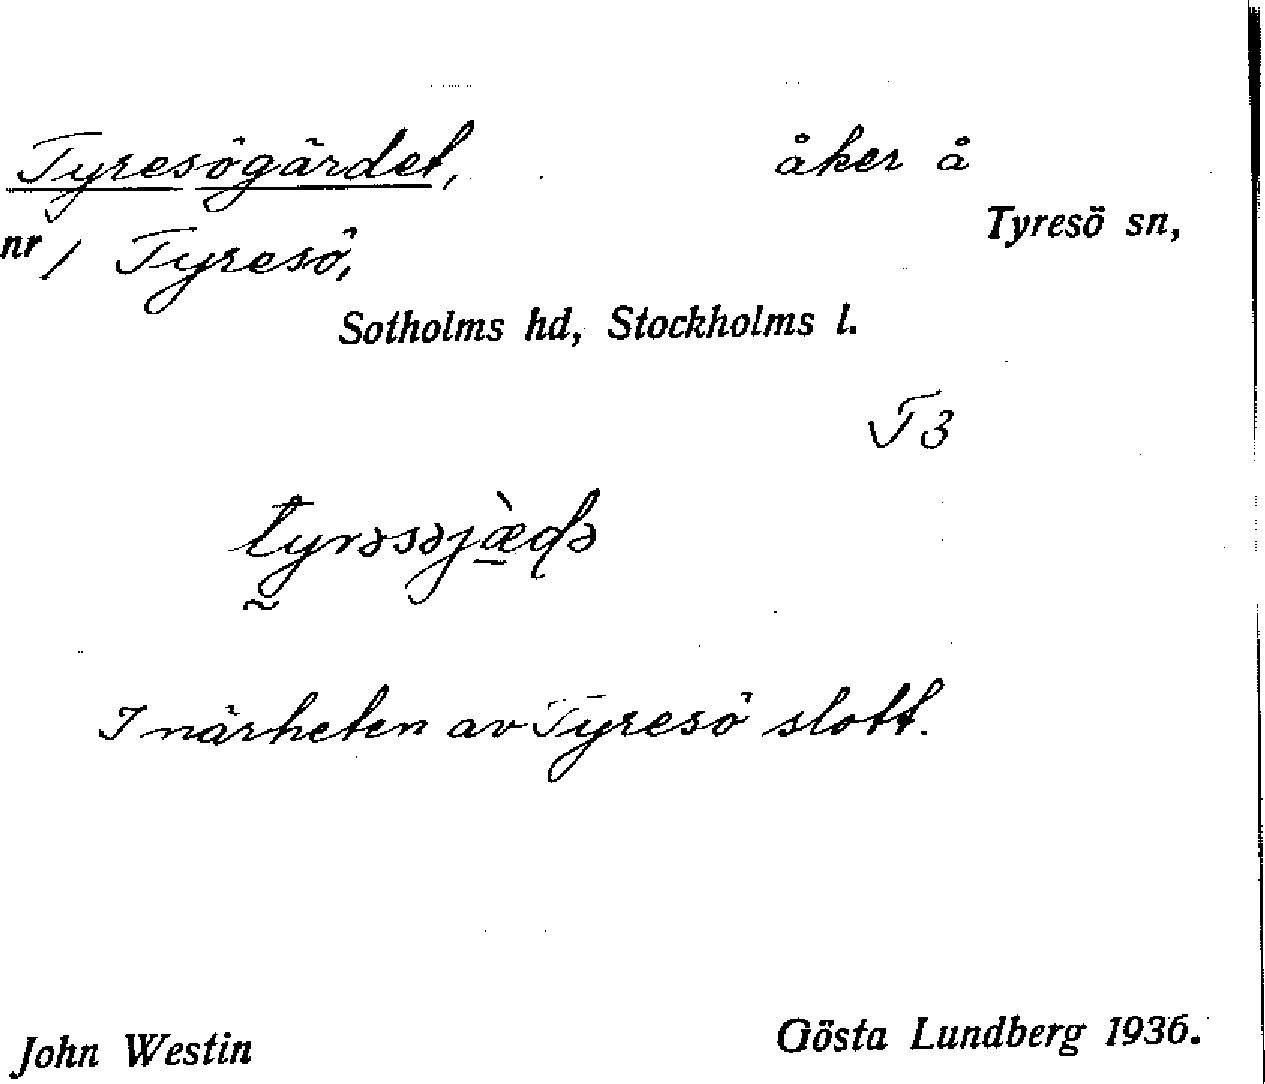 Tyresögärdet, åker å
Tyresö sn,
nr 1 Tyresö,
Sotholms hd, Stockholms l.
T3
tyrəsəjæ̀ɖə
I närheten av Tyresö slott.
John Westin Gösta Lundberg 1936.